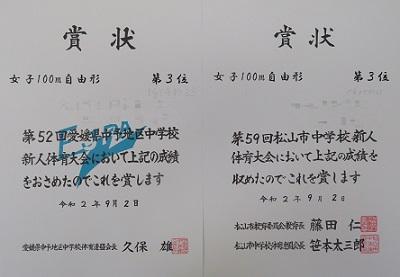 賞状
女子100m自由形 第3位
第52回愛媛県中予地区中学校
新人体育大会において上記の成績
をおさめたのでこれを賞します
令和2年9月2日
愛媛県中予地区中学校体育連盟会長 久保 雄
賞状
女子100m自由形 第3位
第59回松山市中学校新人
体育大会において上記の成績を
収めたのでこれを賞します
令和2年9月2日
松山市教育委員会教育長 藤田 仁
松山市中学校体育連盟会長 笹本太三郎